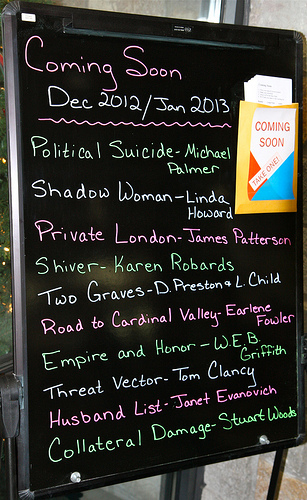 Coming Soon
Dec 2012/Jan 2013
Political Suicide-Michael
Palmer
COMING
SOON
TAKE ONE!
Shadow Woman-Linda
Howard
Private London-James Patterson
Shiver-Karen Robards
Two Graves-D. Preston & L. Child
Road to Cardinal Valley-Earlene
Fowler
Empire and Honor-W.E.B.
Griffith
Threat Vector-Tom Clancy
Husband List-Janet Evanovich
Collateral Damage-Stuart Woods